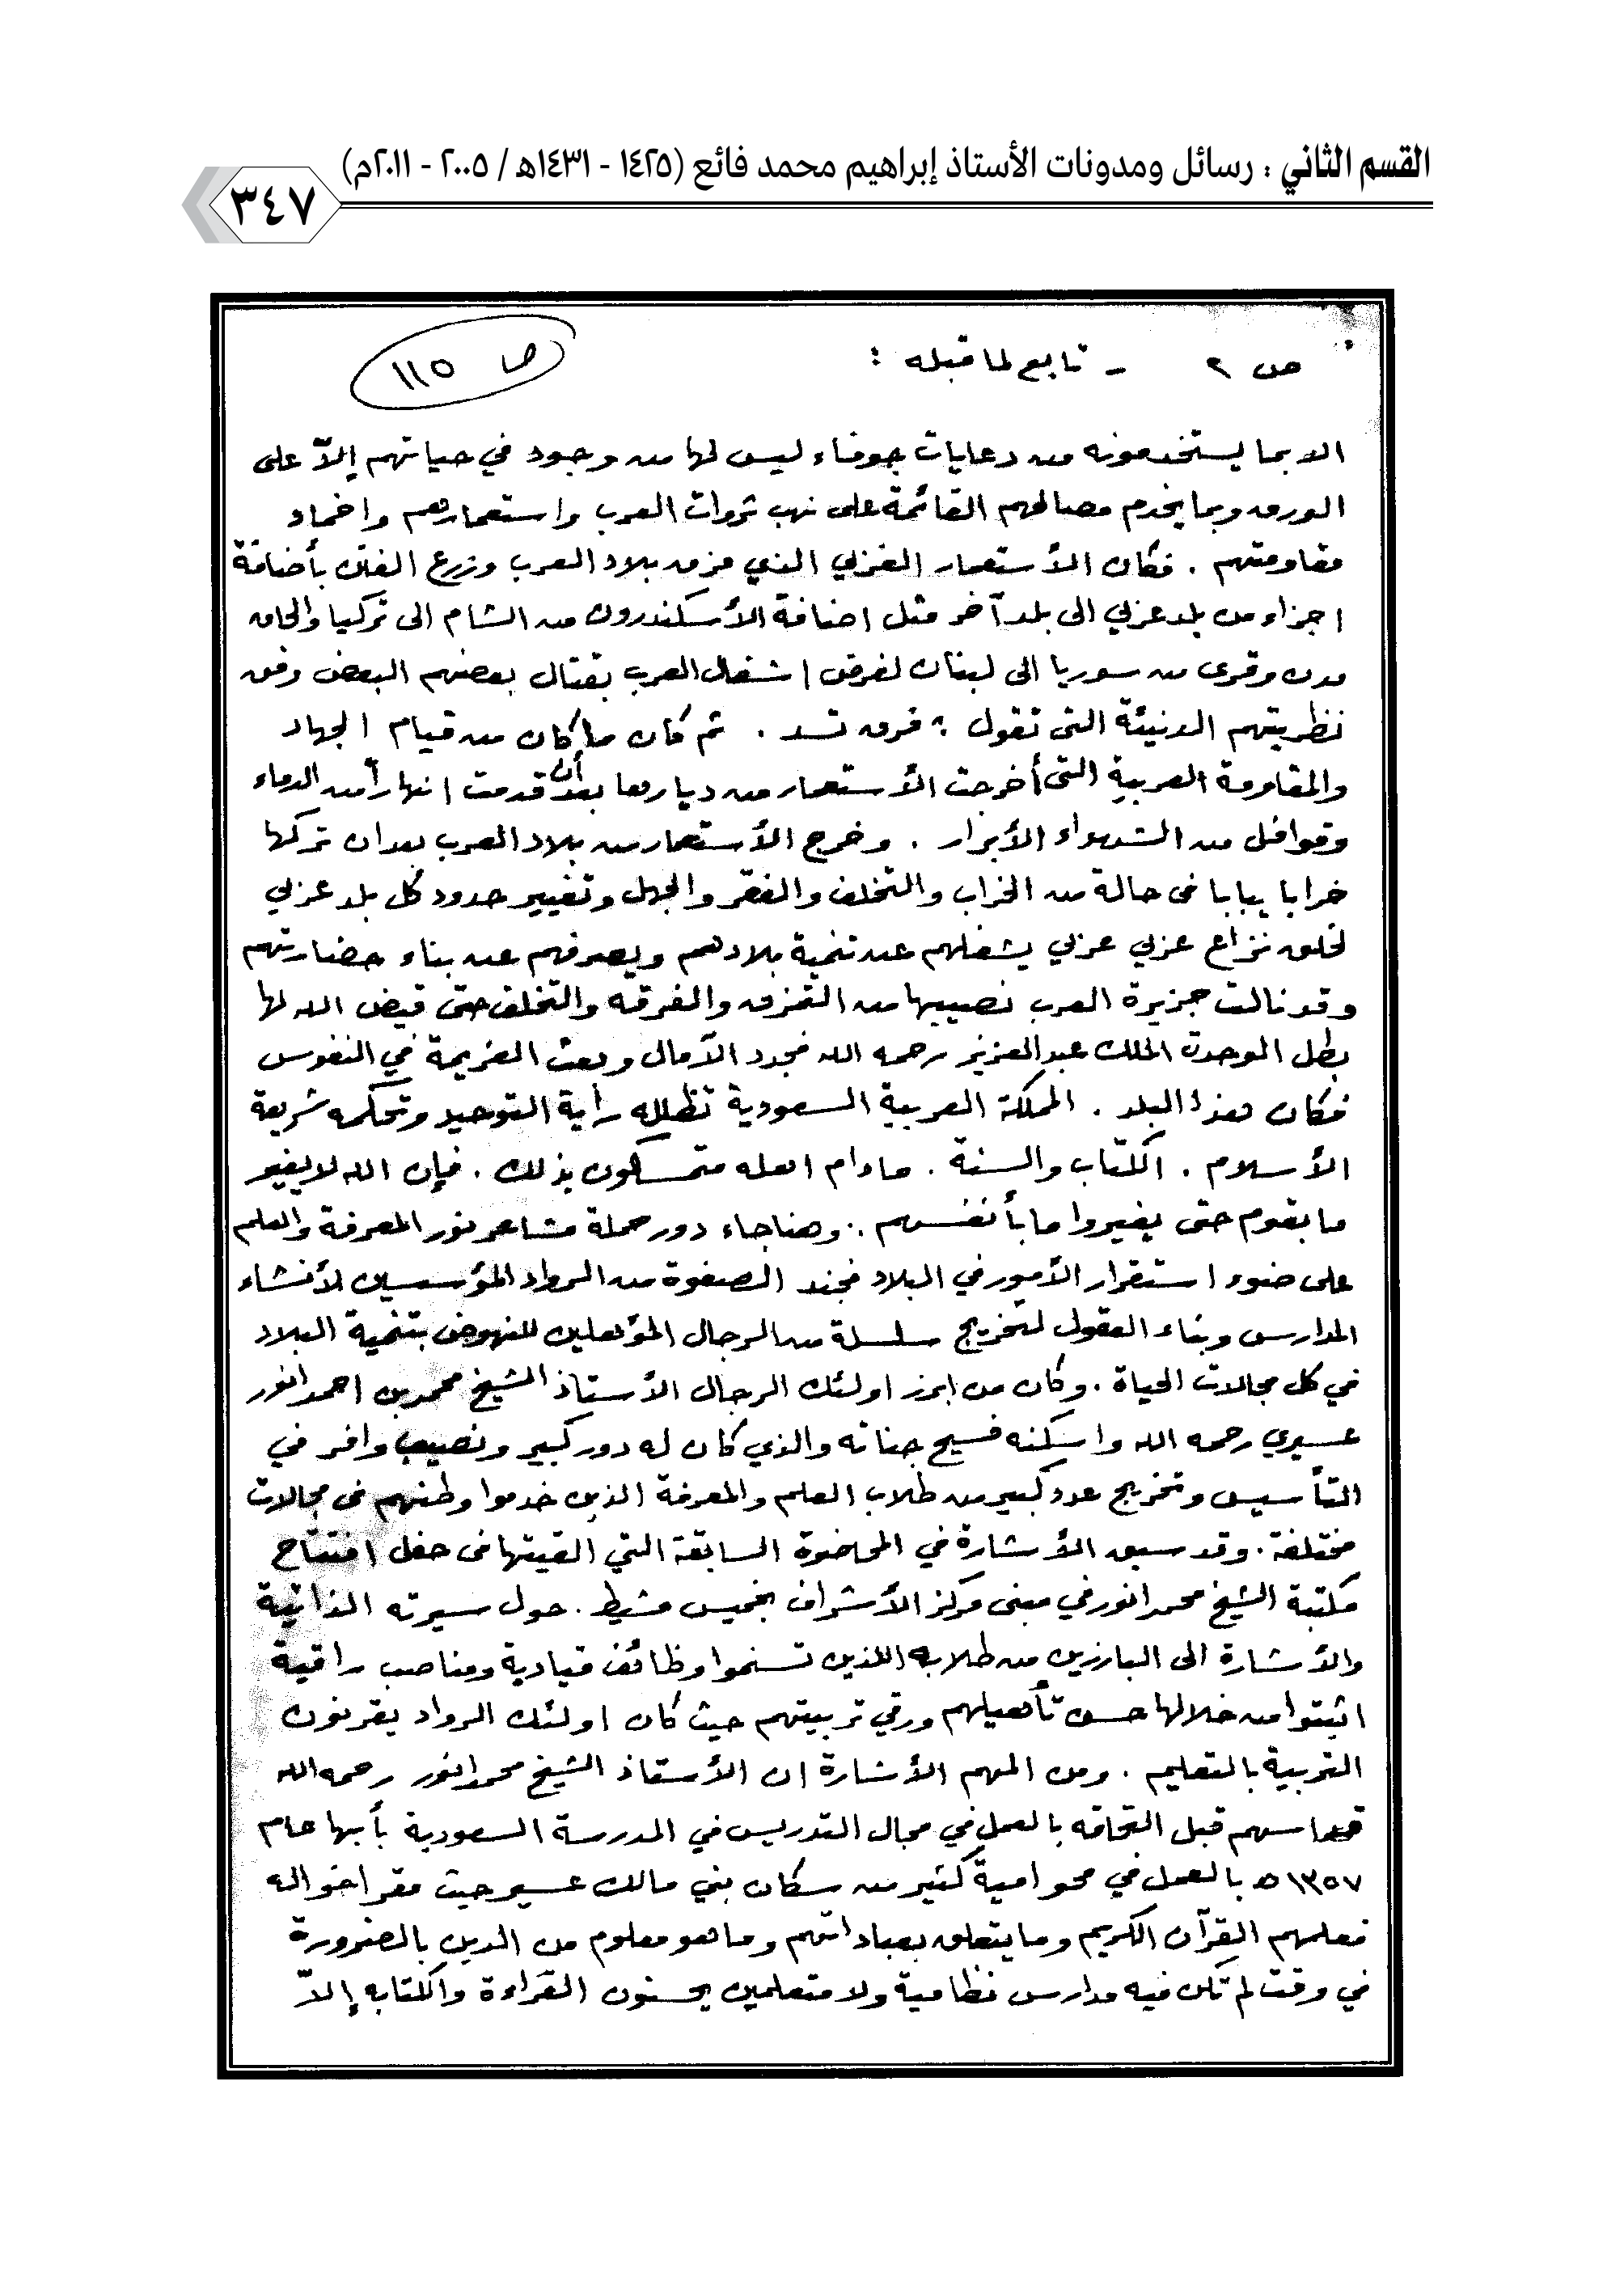 القسم الثاني : رسائل ومدونات الأستاذ إبراهيم محمد فائع (١٤٢٥ - ١٤٣١هـ / ٢٠٠٥ - ٢٠١١م)
٣٤٧
ص ٢ - تابع لما قبله :
ص ١١٥
الا بما يستخدمونه من دعايات جوفاء ليس لها من وجود في حياتهم إلاّ على
الورق وبما يخدم مصالحهم القائمة على نهب ثروات العرب واستعمارهم واخماد
مقاومتهم . فكان الأستعمار الغربي الذي مزق بلاد العرب وزرع الفتن بأضافة
اجزاء من بلد عربي الى بلد آخر مثل اضافة الأسكندرون من الشام الى تركيا والحاق
مدن وقرى من سوريا الى لبنان لغرض اشغال العرب بقتال بعضهم البعض وفق
نظريتهم الدنيئة التى تقول : فرق تسد . ثم كان ما كان من قيام الجهاد
والمقاومة العربية التى أخرجت الأستعمار من ديارها بعد أن قدمت انهاراً من الدماء
وقوافل من الشهداء الأبرار . وخرج الأستعمار من بلاد العرب بعد ان تركها
خرابا يبابا فى حالة من الخراب والتخلف والفقر والجهل وتغيير حدود كل بلد عربي
لخلق نزاع عربي عربي يشغلهم عن تنمية بلادهم ويصرفهم عن بناء حضارتهم
وقد نالت جزيرة العرب نصيبها من التمزق والفرقه والتخلف حتى قيض الله لها
بطل الوحدة الملك عبدالعزيز رحمه الله فجدد الآمال وبعث العزيمة في النفوس
فكان هذا البلد . المملكة العربية السعودية تظلله رأية التوحيد وتحكمه شريعة
الأسلام . الكتاب والسنة . مادام اهله متمسكون بذلك . فإن الله لا يغير
ما بقوم حتى يغيروا ما بأنفسهم .. وهنا جاء دور حملة مشاعر نور المعرفة والعلم
على ضوء استقرار الأمور في البلاد فجند الصفوة من الرواد المؤسسين لأنشاء
المدارس وبناء العقول لتخريج سلسلة من الرجال المؤهلين للنهوض بتنمية البلاد
في كل مجالات الحياة . وكان من ابرز اولئك الرجال الأستاذ الشيخ محمد بن احمد انور
عسيري رحمه الله واسكنه فسيح جناته والذي كان له دور كبير ونصيب وافر في
التأسيس وتخريج عدد كبير من طلاب العلم والمعرفة الذين خدموا وطنهم فى مجالات
مختلفة . وقد سبق الأشارة في المحاضرة السابقة التي القيتها فى حفل افتتاح
مكتبة الشيخ محمد انور في مبنى مركز الأشراف بخميس مشيط . حول سيرته الذاتية
والأشارة الى البارزين من طلابه اللذين تسنموا وظائف قيادية ومناصب راقية
اثبتوا من خلالها حسن تأهيلهم ورقي تربيتهم حيث كان اولئك الرواد يقرنون
التربية بالتعليم . ومن المهم الأشارة ان الأستاذ الشيخ محمد انور رحمه الله
قد اسهم قبل التحاقه بالعمل في مجال التدريس في المدرسة السعودية بأبها عام
١٣٥٧هـ بالعمل في محو امية كثير من سكان بني مالك عسير حيث مقر اخواله
فعلمهم القرآن الكريم وما يتعلق بعباداتهم وما هو معلوم من الدين بالضرورة
في وقت لم تكن فيه مدارس نظامية ولا متعلمين يحسنون القراءة والكتابه إلاّ